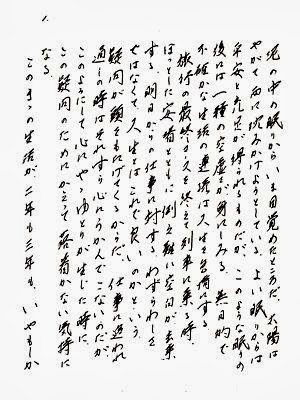 1.
泥の中の眠りから、いま目覚めたところだ。太陽は
やがて西に沈みかけようとしている。よい眠りからは
平安と充足が得られるものだが、このような眠りの
後には一種の空虚が身にしみる。無目的で
不確かな生活の連続は人生を台無しにする。
旅行の最終コースを終えて列車に乗る時
ほっとした安堵とともに倒え難い空白が去来
する。明日からの仕事に対する、わずらわしさ
ではなくて、人生とはこれで良いのかという
疑問が頭をもたげてくるからだ。仕事に追われ
通しの時はそれすら心にうかんでこないのだが、
このようにして心にややゆとりが生じた時に、
この疑問のためにかえって落着かない気持に
なる。
このままの生活が二年も三年も、いやもしか